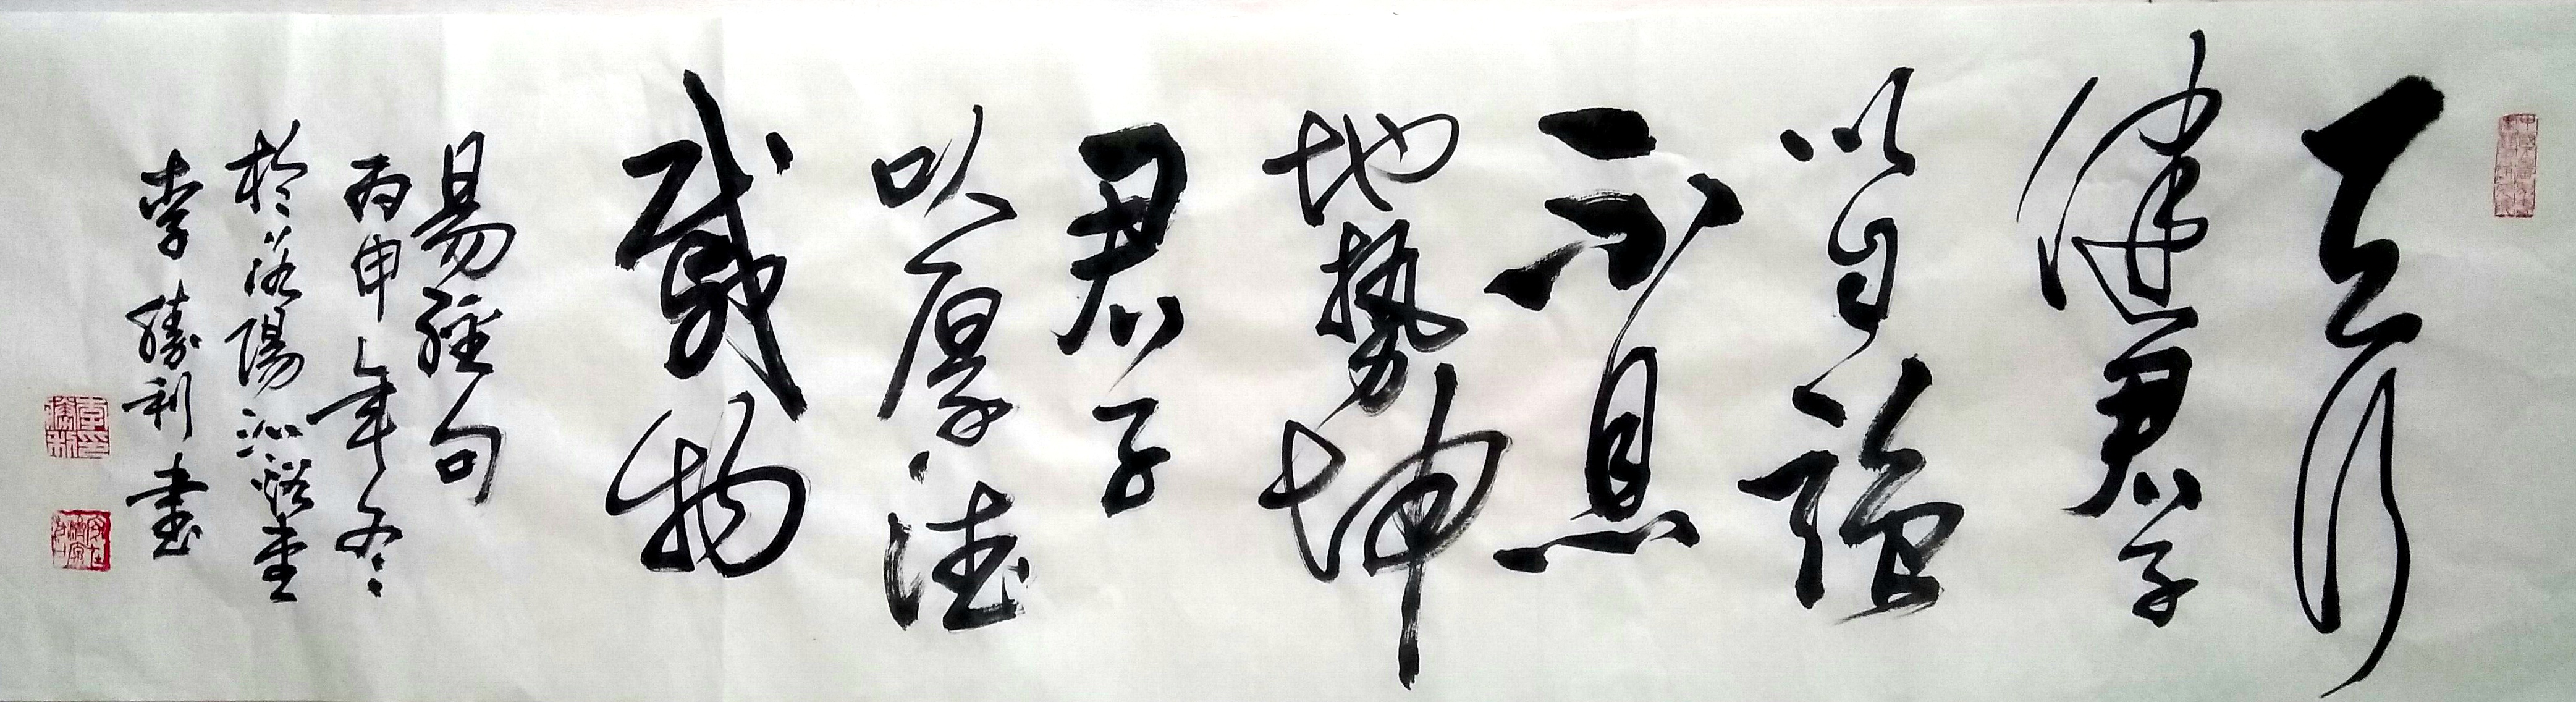 天行
健君子
以自強
不息
地勢坤
君子
以厚德
載物
易經句
丙申年冬
於洛陽沁谿堂
李勝利書